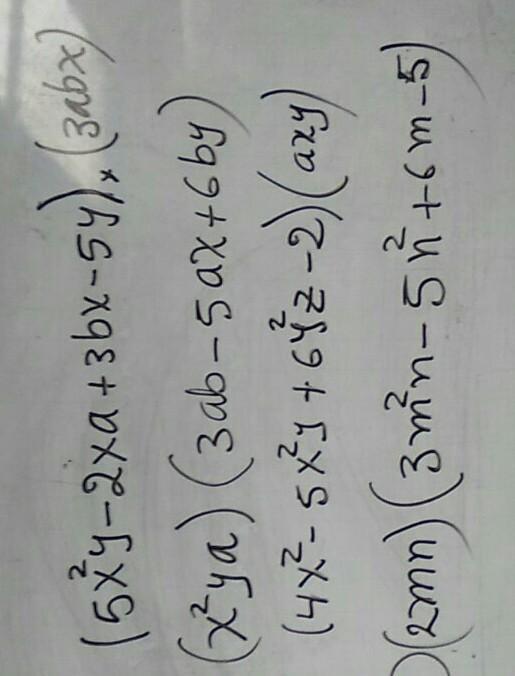 (5x²y-2xa+3bx-5y)×(3abx)
(x²ya)(3ab-5ax+6by)
(4x²-5x²y+6y²z-2)(axy)
)(2mn)(3m²n-5n²+6m-5)